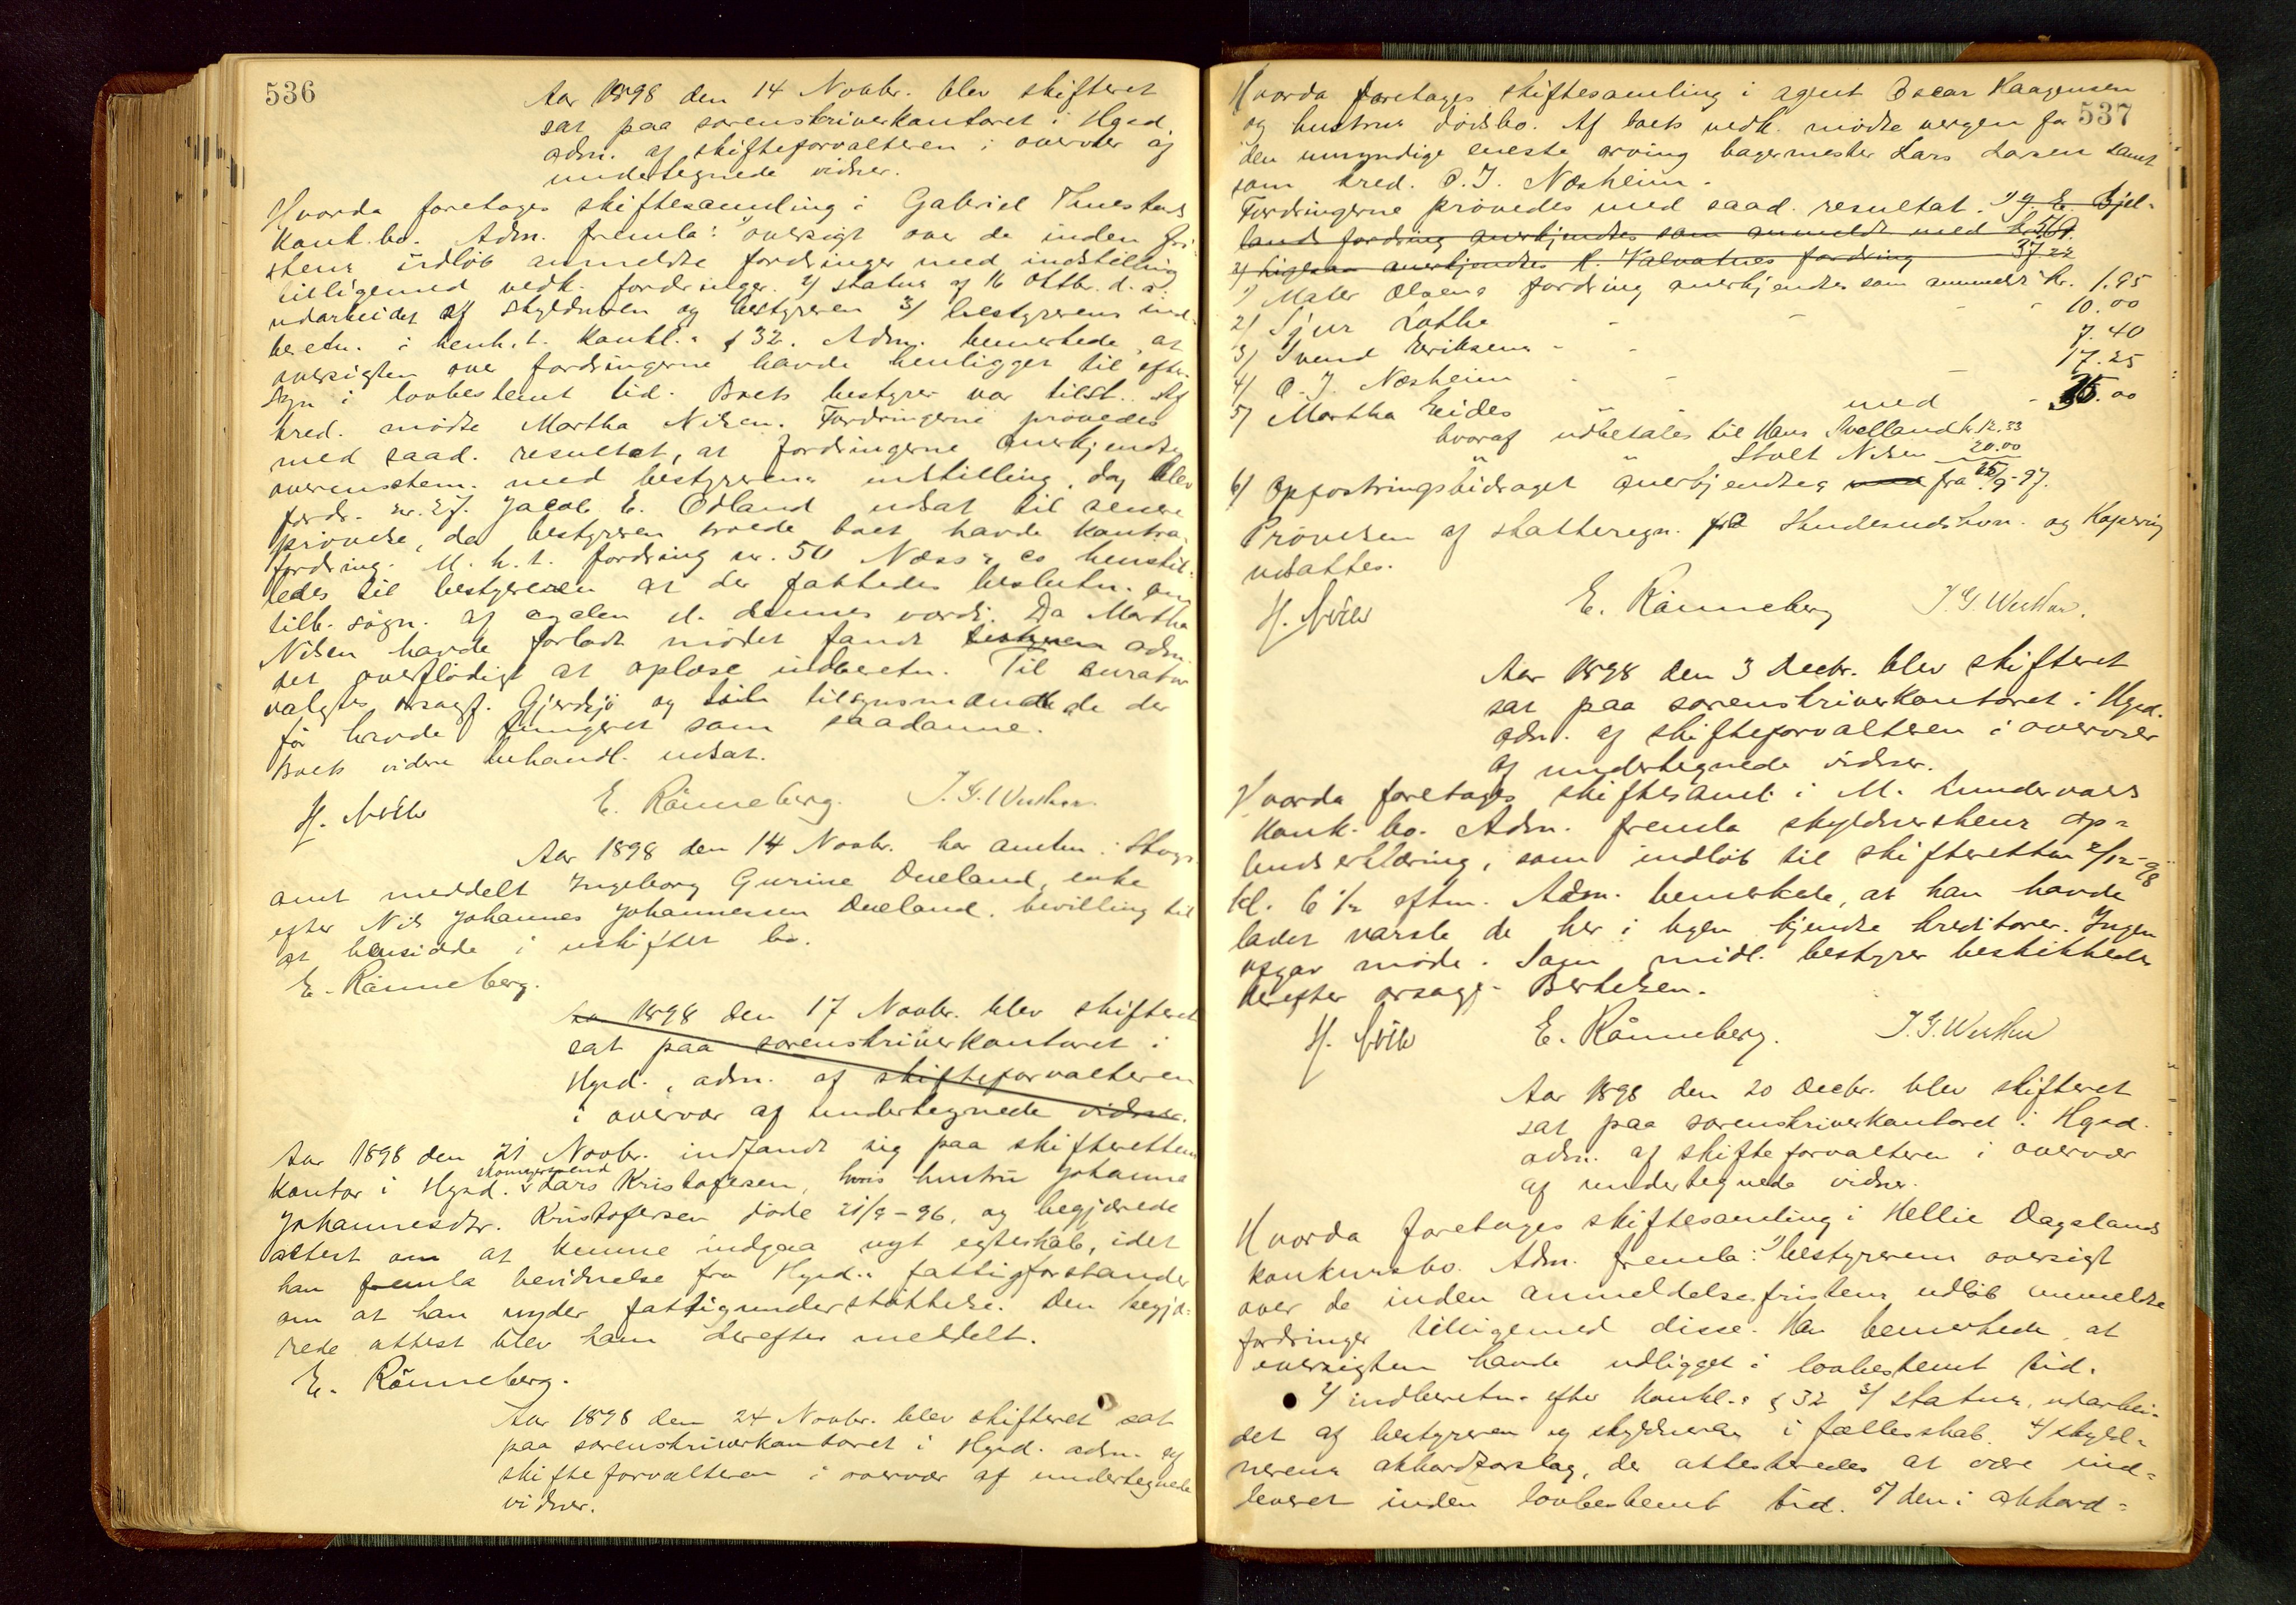 536
Aar 1898 den 14 Novbr. blev skifteret
sat paa sorenskriverkontoret i Hgsd.
adm. af skifteforvalteren i overvær af
undertegnede vidner.
Hvorda foretoges skiftesamling i Gabriel Thuestads
konk.bo. Adm. fremla: 1) oversigt over de inden fri-
stens udløb anmeldte fordringer med indstilling
tilligemed vedk. fordringer. 2/ status af 16 oktbr. d. a.
udarbeidet af skyldneren og bestyreren 3/ bestyrerens ind-
beretn. i henh. t. konkl.s § 32. Adm. bemerkede, at
oversigten over fordringerne havde henligget til efter-
syn i lovbestemt tid. Boets bestyrer var tilst. Af
kred. mødte Martha Nilsen. Fordringerne prøvedes
med saad. resultat, at fordringerne anerkjendtes
overensstem. med bestyrerens indstilling, dog blev
fordr. nr. 27. Jacob E. Ødland udsat til senere
prøvelse, da bestyreren troede boet havde kontra-
fordring. M. h. t. fordring nr. 50 Næss & co henstil-
ledes til bestyreren at der fattedes beslutn. om
tilb. søgn. af cyclen el. dennes værdi. Da Martha
Nilsen havde forladt mødet fandt adm.
det overflødigt at oplæse indberetn. Til curator
valgtes orsagf. Gjerdsjø og til tilsynsmænd de der
før havde fungeret som saadanne.
Boets videre behandl. udsat.
E. Rönneberg. J. G. Wuther.
Aar 1898 den 14 Novbr. har amtm. i Stavgr
amt meddelt Ingeborg Gurine Dueland, enke
efter Nils Johannes Johannessen Dueland, bevilling til
at hensidde i uskiftet bo.
E. Rönneberg.
Aar 1898 den 17 Novbr. blev skifteret
sat paa sorenskriverkontoret i
Hgsd., adm. af skifteforvalteren
i overvær af undertegnede vidner.
Aar 1898 den 21 Novbr. indfandt sig paa skifterettens
kontor i Hgsd. Lars Kristofersen, hvis hustru Johanne
Johannesdtr. Kristofersen døde 21/9-96, og begjærede
attest om at kunne indgaa nyt egteskab, idet
han fremla bevidnelse fra Hgsd.s fattigforstander
om at han nyder fattigunderstøttelse. Den begjæ-
rede attest blev ham derefter meddelt.
E. Rönneberg.
Aar 1898 den 24 Novbr. blev skifteret sat
paa sorenskriverkontoret i Hgsd. adm. af
skifteforvalteren i overvær af undertegnede
vidner.
537
Hvorda foretoges skiftesamling i agent Oscar Haagensen
og hustrus dødsbo. Af boets vedk. mødte vergen for
den umyndige eneste arving bagermester Lars Larsen samt
som kred. O. J. Næsheim.
Fordringerne prøvedes med saad. resultat. 1) G. E. Bjel-
lands fordring anerkjendtes som anmeldt med
2/ Ligesaa anerkjendtes H. Valvatnes fordring 37.22
1) Maler Olsens fordring anerkjendtes som anmeldt kr. 1.95
2/ Sjur Lothe - - - 10.00
3/ Svend Eriksens - - 7.40
4/ O. J. Næsheim - - - 17.25
5/ Martha Eides " " med - 35.00
hvoraf udbetales til Hans Svelland k. 12.33
Stolt Nilsen 20.00
6/ Opfostringsbidraget anerkjendtes fra 25/9-97.
Prøvelsen af skatteregn. fra Skudesneshavn. og Kopervig
udsattes.
E. Rönneberg J. G. Wuther.
Aar 1898 den 3 Decbr. blev skifteret
sat paa sorenskriverkontoret i Hgsd.
adm. af skifteforvalteren i overvær
af undertegnede vidner.
Hvorda foretoges skiftesaml. i M. Lundervaas
konk. bo. Adm. fremla skyldnerskens op-
budserklæring, som indløb til skifteretten 2/12-98
kl. 6 1/2 eftm. Adm. bemerkede, at han havde
ladet varsle de her i byen kjendte kreditorer. Ingen
afgav møde. Som midl. bestyrer beskikkedes
derefter orsagf. Bertelsen.
E. Rönneberg. J. G. Wuther
Aar 1898 den 20 Decbr. blev skifteret
sat paa sorenskriverkontoret i Hgsd.
adm. af skifteforvalteren i overvær
af undertegnede vidner.
Hvorda foretoges skiftesamling i Hellie Dagslands
konkursbo. Adm. fremla: 1) bestyrerens oversigt
over de inden anmeldelsesfristens udløb anmeldte
fordringer tilligemed disse. Han bemerkede, at
oversigten havde udligget i lovbestemt tid.
2/ indberetn. efter konkl.s § 32 3/ status, udarbei-
det af bestyreren og skyldneren i fællesskab. 4/ skyld-
nerens akkordforslag, der attesteredes at være ind-
leveret inden lovbestemt tid. 5/ den i akkord-